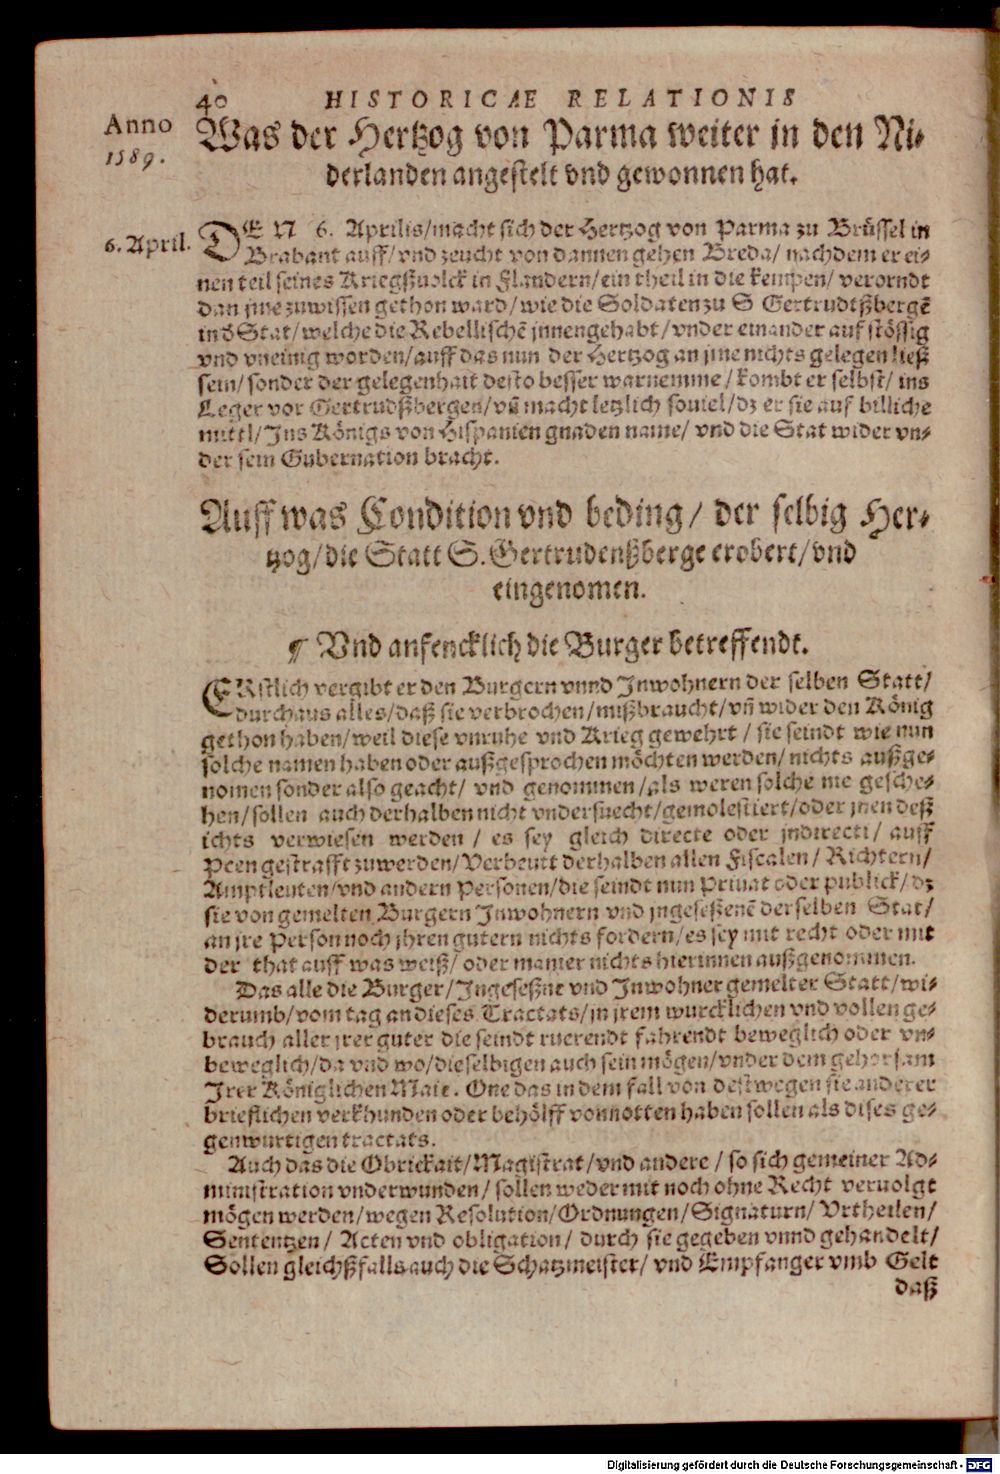 40 HISTORICÆ RELATIONIS
Anno
1589.
Was der Hertzog von Parma weiter in den Ni-
derlanden angestelt vnd gewonnen hat.
6. April.
DEN 6. Aprilis/macht sich der Hertzog von Parma zu Brüssel in
Brabant auff/vnd zeucht von dannen gehen Breda/nachdem er ei-
nen teil seines Kriegßuolck in Flandern/ein theil in die kempen/verorndt
dan jme zuwissen gethon ward/wie die Soldaten zu S Gertrudtßbergē
in d̄ Stat/welche die Rebellischē jnnengehabt/vnder einander auf stössig
vnd vneinig worden/auff das nun der Hertzog an jme nichts gelegen ließ
sein/sonder der gelegenhait desto besser warnemme/kombt er selbst/ins
Leger vor Gertrudßbergen/vn̄ macht letzlich souiel/dz er sie auf billiche
mittl/Ins Königs von Hispanien gnaden name/vnd die Stat wider vn-
der sein Gubernation bracht.
Auff was Condition vnd beding/ der selbig Her-
tzog/die Statt S. Gertrudenßberge erobert/vnd
eingenomen.
¶ Vnd anfencklich die Burger betreffendt.
ERstlich vergibt er den Burgern vnnd Inwohnern der selben Statt/
durchaus alles/daß sie verbrochen/mißbraucht/vn̄ wider den König
gethon haben/weil diese vnruhe vnd Krieg gewehrt/sie seindt wie nun
solche namen haben oder außgesprochen möchten werden/nichts außge-
nomen sonder also geacht/ vnd genommen/als weren solche nie gesche-
hen/sollen auch derhalben nicht vndersuecht/gemolestiert/oder jnen deß
ichts verwiesen werden / es sey gleich directe oder jndirecti/ auff
Peen gestrafft zuwerden/Verbeutt derhalben allen Fiscalen/ Richtern/
Amptleuten/vnd andern Personen/die seindt nun Priuat oder publick/dz
sie von gemelten Burgern Inwohnern vnd jngeseßenē derselben Stat/
an jre Person noch jhren gutern nichts fordern/es sey mit recht oder mit
der that auff was weiß/oder manier nichts hierinnen außgenommen.
Das alle die Burger/Ingeseßne vnd Inwohner gemelter Statt/wi-
derumb/vom tag an dieses Tractats/in jrem wurcklichen vnd vollen ge-
brauch aller jrer guter die seindt ruerendt fahrendt beweglich oder vn-
beweglich/da vnd wo/dieselbigen auch sein mögen/vnder dem gehorsam
Irer Königlichen Maie. One das in dem fall von destwegen sie anderer
brieflichen verkhunden oder behölff vonnotten haben sollen als dises ge-
genwurtigen tractats.
Auch das die Obrickait/Magistrat/vnd andere / so sich gemeiner Ad-
ministration vnderwunden/ sollen weder mit noch ohne Recht veruolgt
mögen werden/wegen Resolution/Ordnungen/Signaturn/ Vrtheilen/
Sententzen/ Acten vnd obligation/ durch sie gegeben vnnd gehandelt/
Sollen gleichßfalls auch die Schatzmeister/ vnd Empfanger vmb Gelt
daß
Digitalisierung gefördert durch die Deutsche Forschungsgemeinschaft - DFG